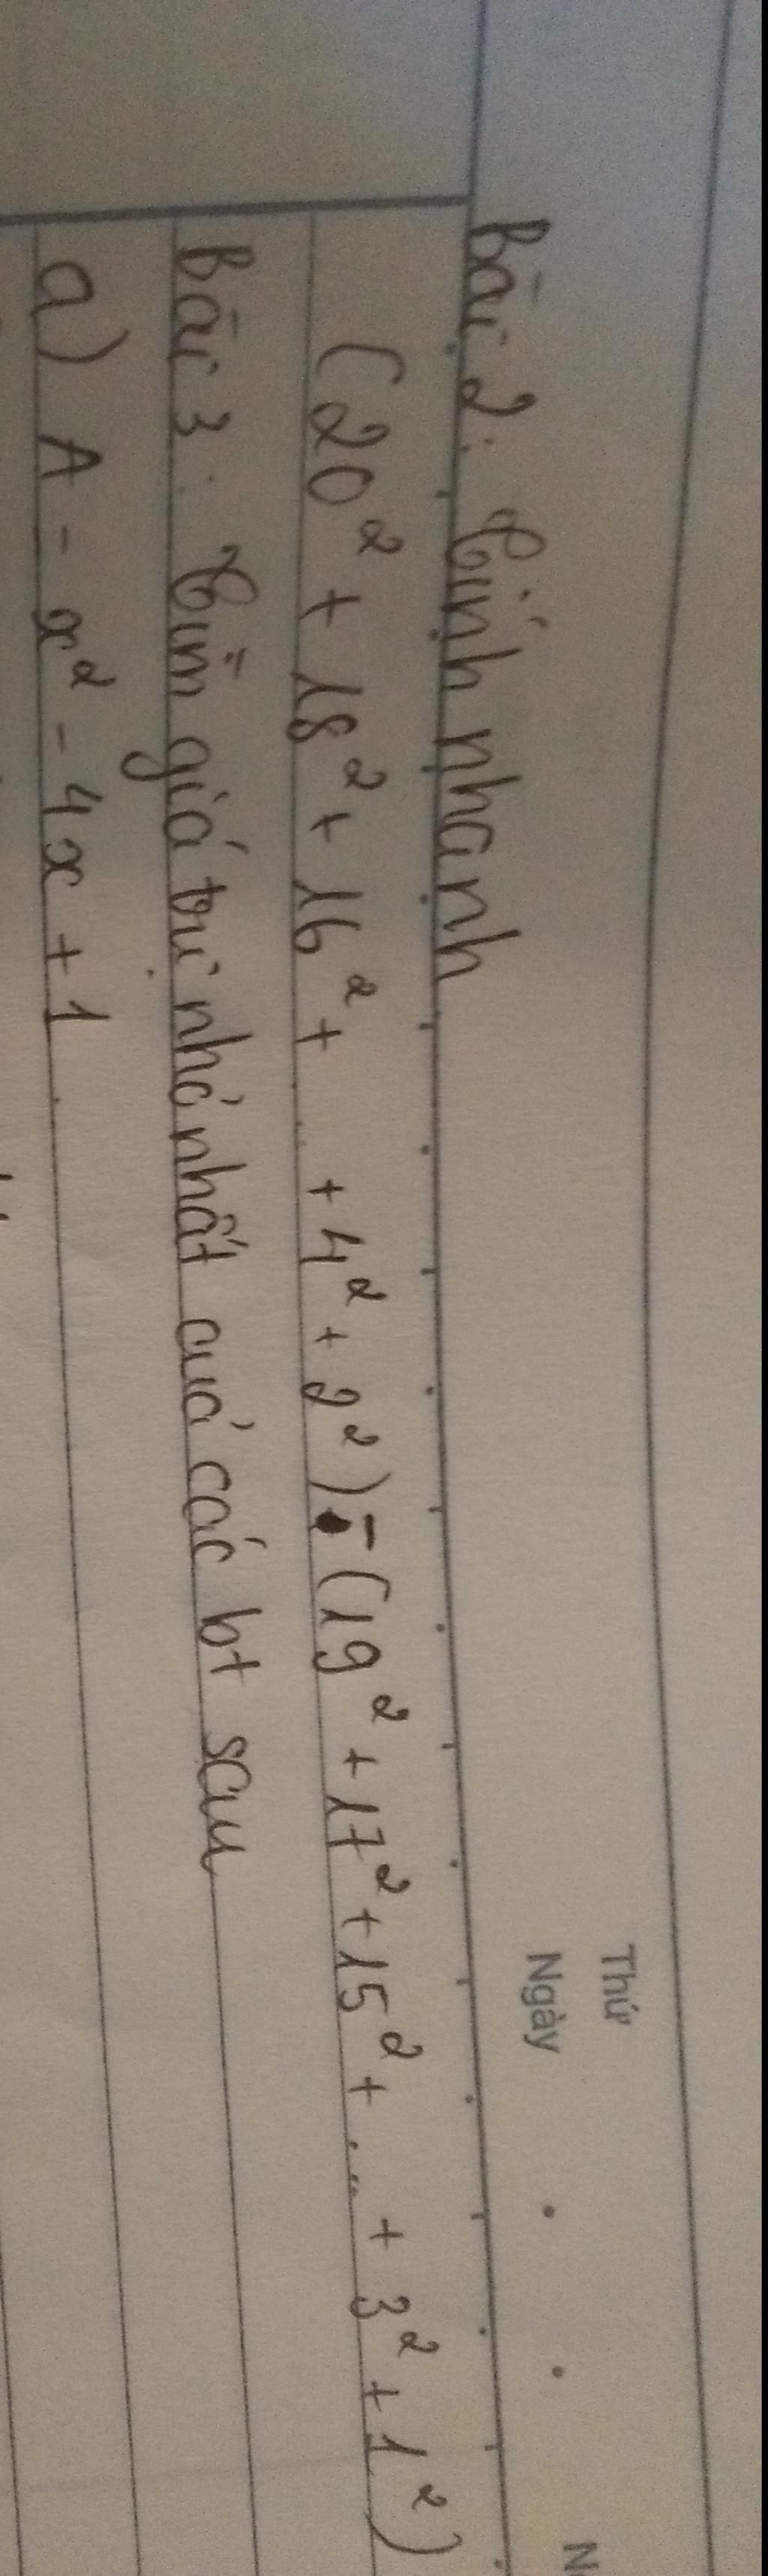 Thứ
Ngày
Bài 2: Tính nhanh
(20² + 18² + 16² + ... + 4² + 2²) - (19² + 17² + 15² + ... + 3² + 1²)
Bài 3: Tìm giá trị nhỏ nhất của các bt sau
a) A = x² - 4x + 1